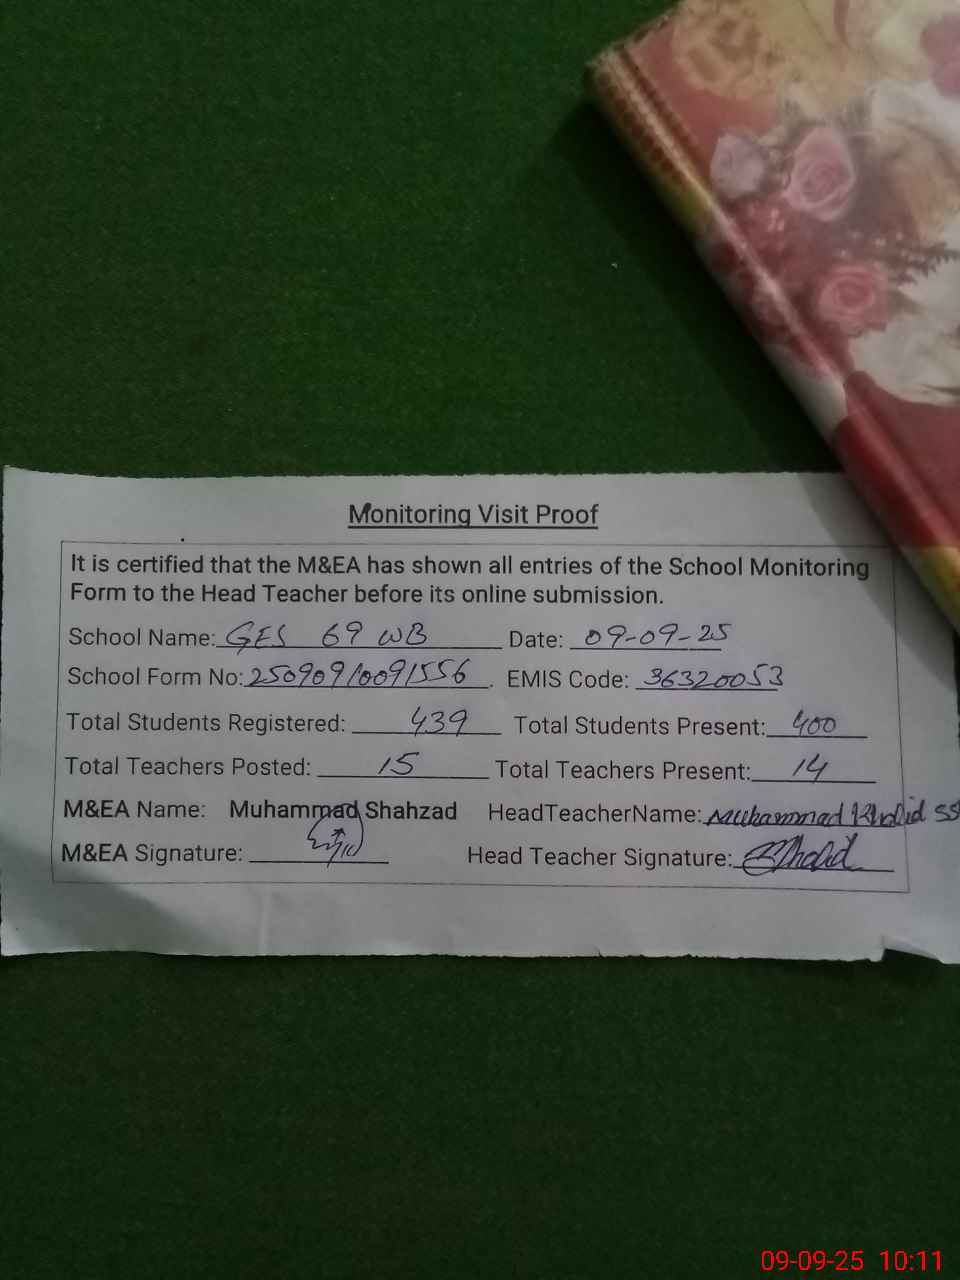 Monitoring Visit Proof
It is certified that the M&EA has shown all entries of the School Monitoring
Form to the Head Teacher before its online submission.
School Name: GES 69 WB Date: 09-09-25
School Form No: 25090910091556. EMIS Code: 36320053
Total Students Registered: 439 Total Students Present: 400
Total Teachers Posted: 15 Total Teachers Present: 14
M&EA Name: Muhammad Shahzad HeadTeacherName: Muhammad Khalid SS
M&EA Signature: Head Teacher Signature: Khalid
09-09-25 10:11